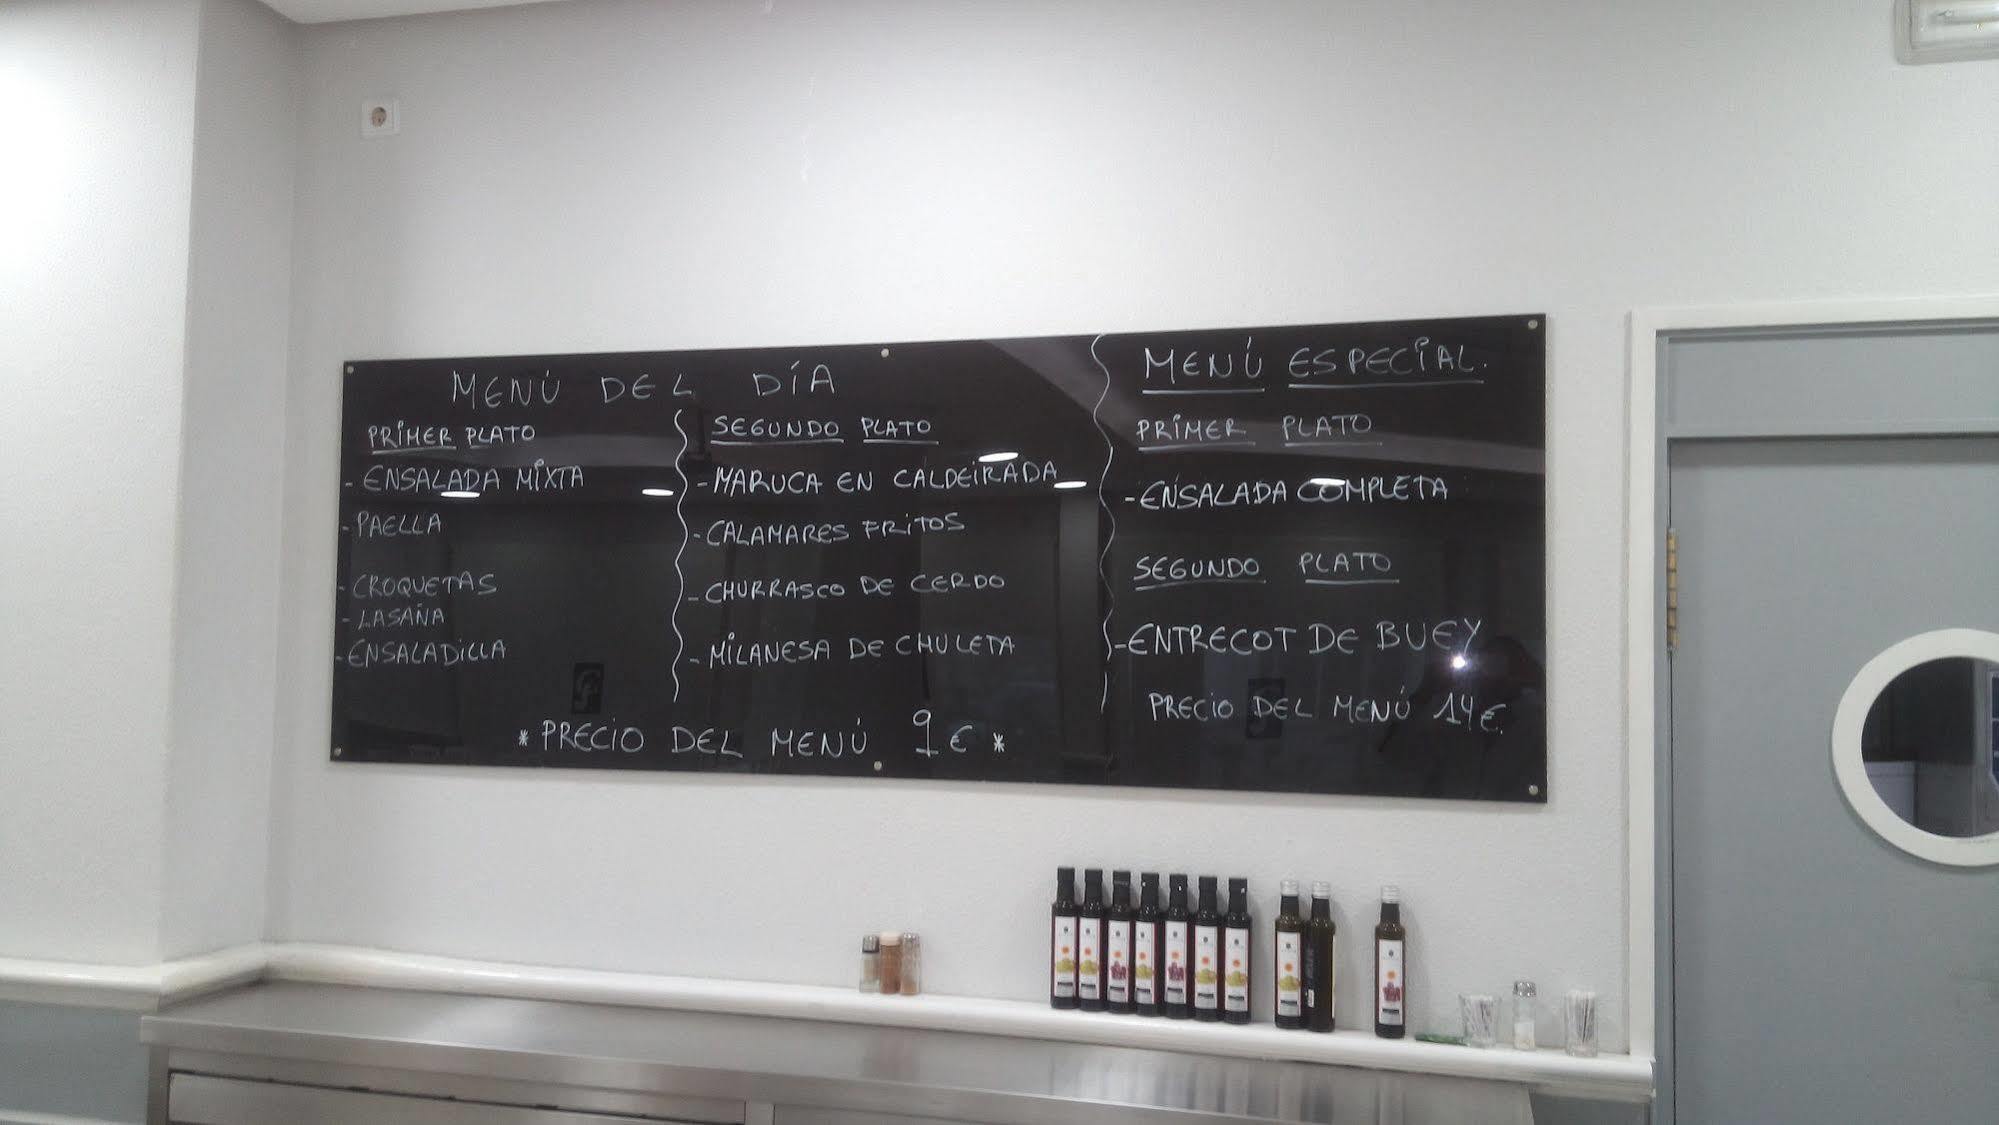 MENÚ DEL DÍA
PRIMER PLATO
- ENSALADA MIXTA
- PAELLA
- CROQUETAS
- LASAÑA
- ENSALADILLA
SEGUNDO PLATO
- MARUCA EN CALDEIRADA
- CALAMARES FRITOS
- CHURRASCO DE CERDO
- MILANESA DE CHULETA
* PRECIO DEL MENÚ 9 € *
MENÚ ESPECIAL.
PRIMER PLATO
- ENSALADA COMPLETA
SEGUNDO PLATO
- ENTRECOT DE BUEY
PRECIO DEL MENÚ 14 €.